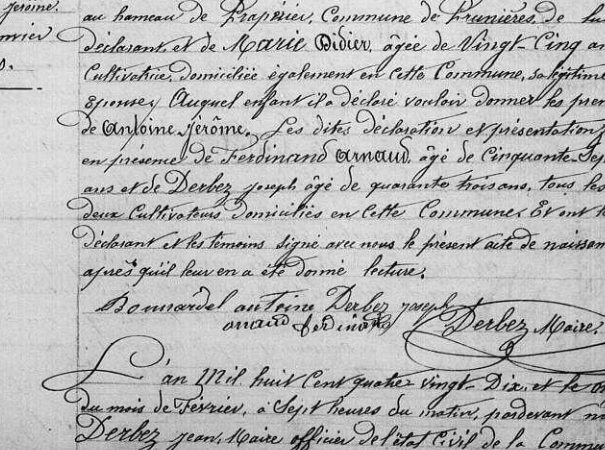 Jérôme
anvier
au hameau de Prapérier, Commune de Prunières, de lu
déclarant, et de Marie Didier, âgée de Vingt-Cinq an
Cultivatrice, domiciliée également en Cette Commune, sa légitime
Epouse, Auquel enfant il a déclaré vouloir donner les pren
de Antoine Jérôme. Les dites déclaration et présentation
en présence de Ferdinand Arnaud, âgé de Cinquante-Sep
ans et de Derbez Joseph âgé de quarante trois ans, tous les
deux Cultivateurs domiciliés en Cette Commune. Et ont l
déclarant et les témoins signé avec nous le présent acte de naissan
après qu'il leur en a été donné lecture.
Bonnardel antoine Derbez joseph
arnaud ferdinand Derbez Maire
L'an Mil huit Cent quatre vingt-Dix, et le
du mois de Février, à Sept heures du matin, pardevant n
Derbez Jean, Maire officier de l'état Civil de la Commu